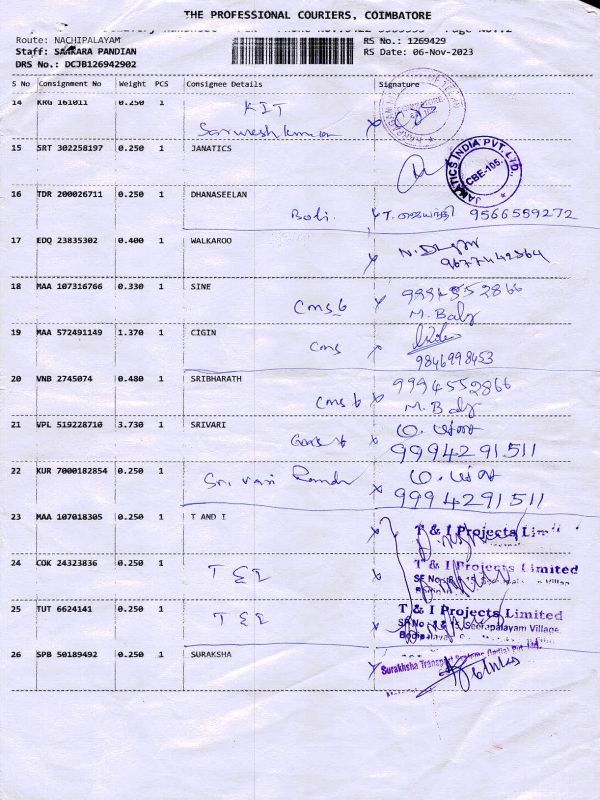 THE PROFESSIONAL COURIERS, COIMBATORE
Route: NACHIPALAYAM RS No.: 1269429
Staff: SANKARA PANDIAN RS Date: 06-Nov-2023
DRS No.: DCJB126942902
S No Consignment No Weight PCS Consignee Details Signature
14 KRG 161011 0.250 1 KIT
Sarveshkumar
15 SRT 302258197 0.250 1 JANATICS
JANATICS INDIA PVT. LTD., CBE-105.
16 TDR 200026711 0.250 1 DHANASEELAN
Bodi. 9566559272
17 EDQ 23835302 0.400 1 WALKAROO
18 MAA 107316766 0.330 1 SINE 9994552866
Cms 6 M. Balg
19 MAA 572491149 1.370 1 CIGIN
Cms 9846998453
20 VNB 2745074 0.480 1 SRIBHARATH 9994552866
Cms 6 M. Balg
21 VPL 519228710 3.730 1 SRIVARI
9994291511
22 KUR 7000182854 0.250 1 Sri vari
9994291511
23 MAA 107018305 0.250 1 T AND I T & I Projects Limi
24 COK 24323836 0.250 1 T & I T & I Projects Limited
25 TUT 6624141 0.250 1 T & I T & I Projects Limited
SF No 8 & 15, Seerapalayam Village
26 SPB 50189492 0.250 1 SURAKSHA
Surakhsha Transpo Systems (India) Pvt. Ltd.